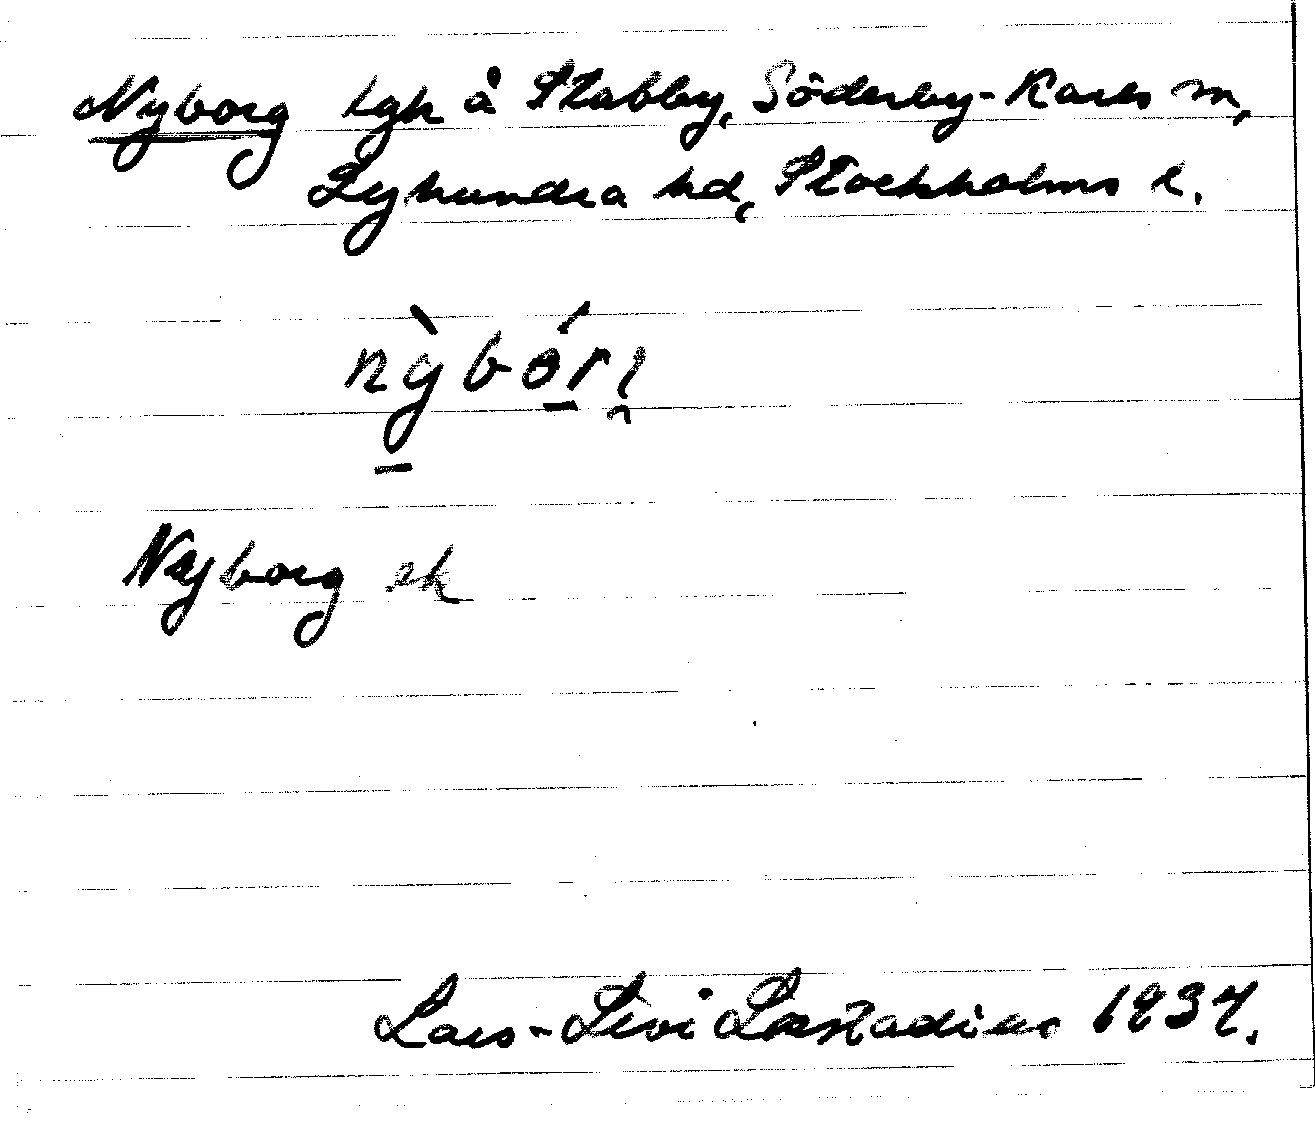 Nyborg lgh å Stabby, Söderby-Karls sn,
Lyhundra hd, Stockholms l.
nỳbórı̯
Nyborg ek
Lars-Levi Læstadius 1934.